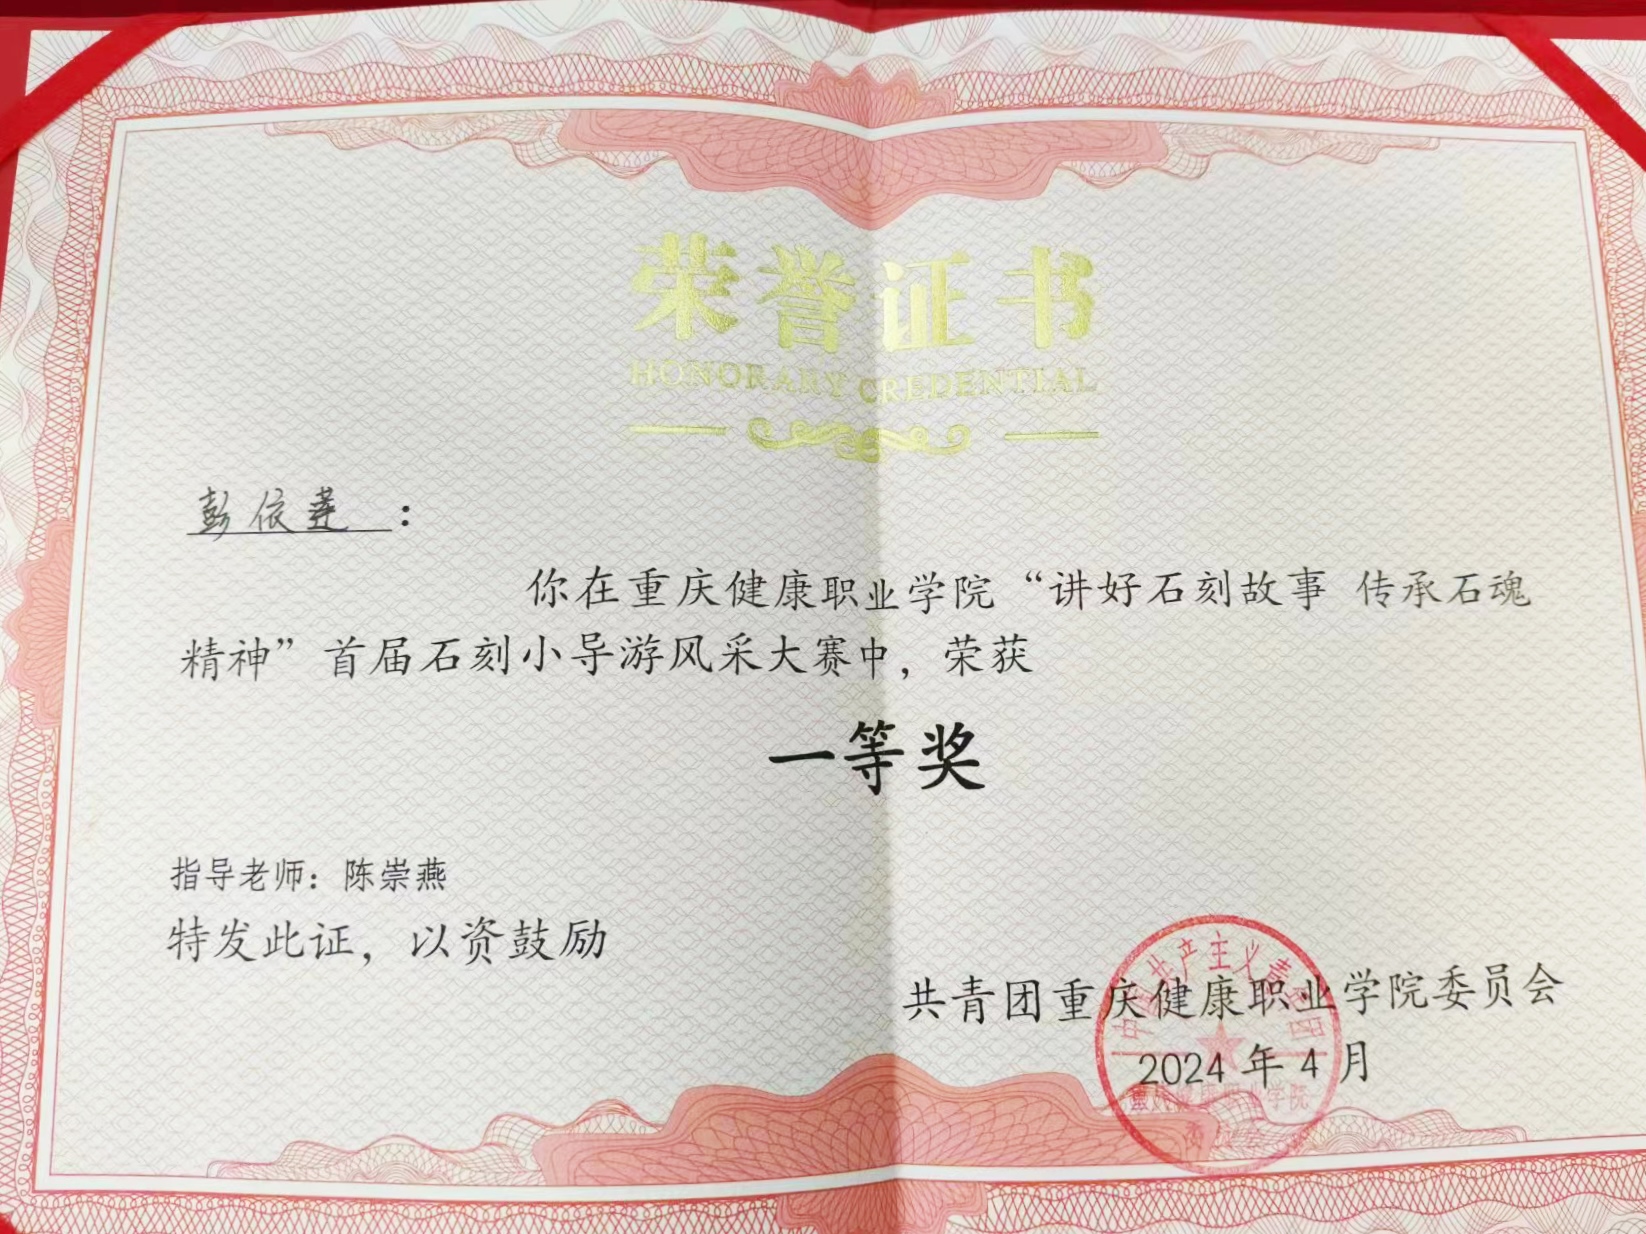 荣誉证书
HONORARY CREDENTIAL
彭依莲：
你在重庆健康职业学院“讲好石刻故事 传承石魂
精神”首届石刻小导游风采大赛中，荣获
一等奖
指导老师：陈崇燕
特发此证，以资鼓励
共青团重庆健康职业学院委员会
2024年4月
中国共产主义青年团
重庆健康职业学院